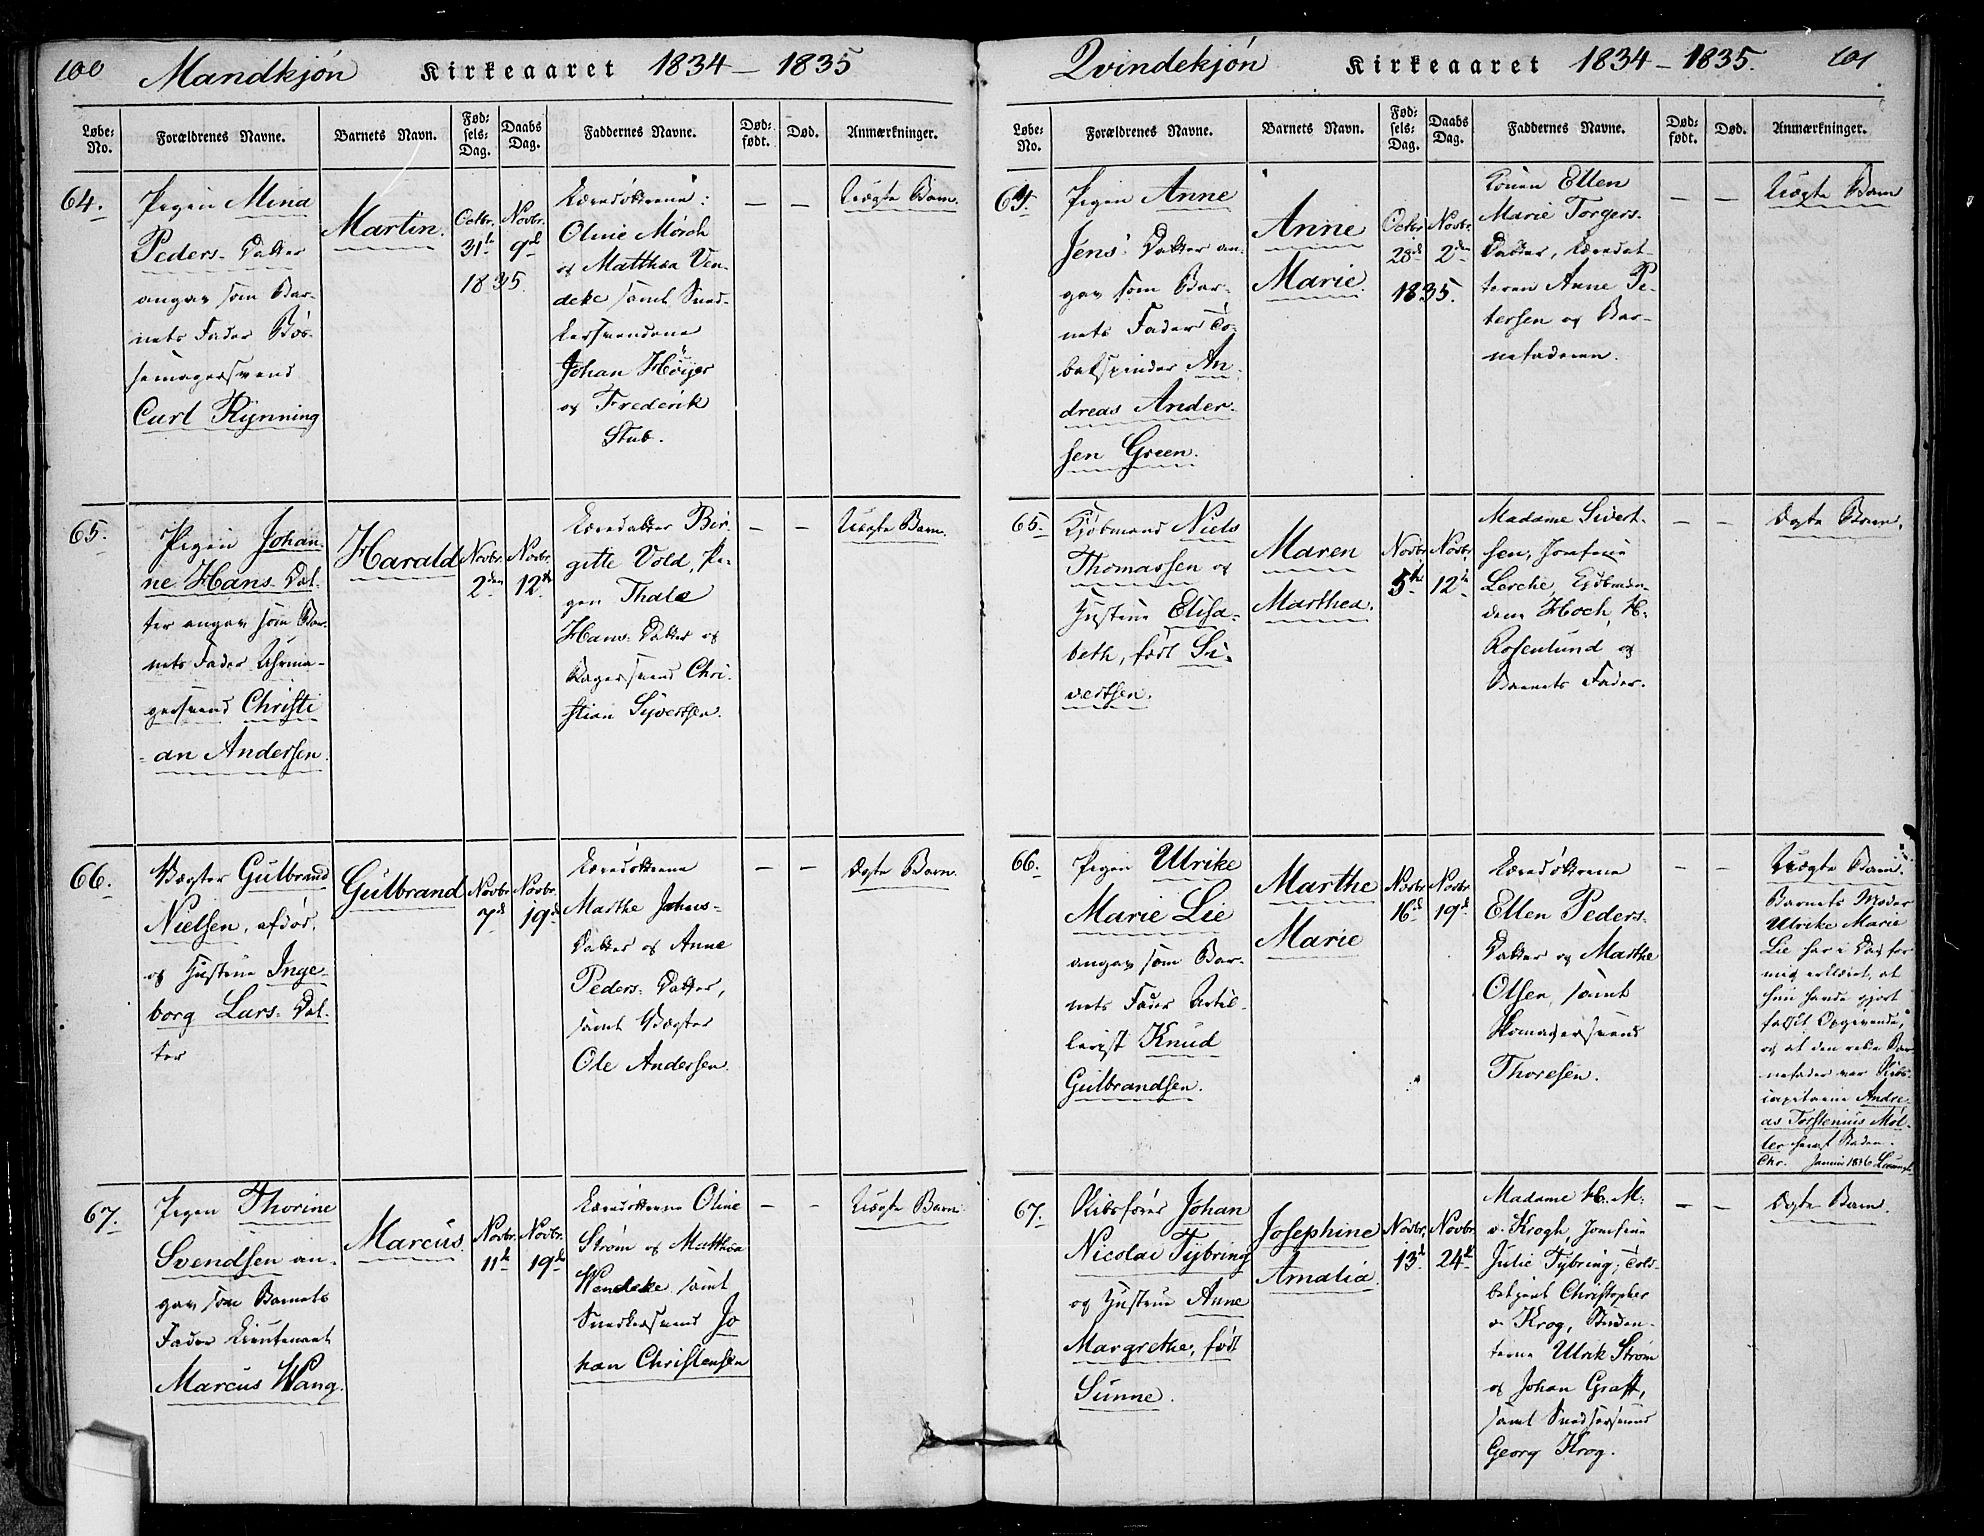 100 Mandkjön Kirkeaaret 1834 – 1835
Løbe-No. Forældrenes Navne. Barnets Navn. Fødsels-Dag. Daabs Dag. Faddernes Navne. Død-født. Død. Anmærkninger.
64. Pigen Mina
Peders- Datter
angav som Bar-
nets Fader Bös-
semagersvend
Carl Rynning
Martin.
Octbr. 31te
Novbr. 9d
1835.
Læredöttrene:
Oline Mörch
og Matthea Wen-
deke samt Sned-
kersvendene
Johan Höyer
og Frederik
Stub.
— —
Uægte Barn.
65. Pigen Johan-
ne Hans- Dat-
ter angav som Bar-
nets Fader Uhrma-
gersvend Christi
-an Andersen.
Harald
Novbr. 2den
Novbr. 12te
Bir-
gitte Vold, Pi-
gen Thale
Hans- Datter og
Bagersvend Chri-
stian Syvertsen.
— —
Uægte Barn.
66. Vægter Gulbrand
Nielsen, afdöd,
og Hustrue Inge-
borg Lars- Dat-
ter
Gulbrand
Novbr. 7d
Novbr. 19d
Læredöttrene
Marthe Johns-
Datter og Anne
Peders- Datter,
samt Vægter
Ole Andersen.
— —
Ægte Barn.
67. Pigen Thorine
Svendsen an-
gav som Barnets
Fader Lieutenant
Marcus Wang.
Marcus.
Novbr. 11te
Novbr. 19de
Læredöttrene Oline
Ström og Matthea
Wendeke samt
Snedkersvend Jo
han Christensen
— —
Uægte Barn
Qvindekjön Kirkeaaret 1834 – 1835. 101
Løbe-No. Forældrenes Navne. Barnets Navn. Fødsels-Dag. Daabs Dag. Faddernes Navne. Død-født. Død. Anmærkninger.
64. Pigen Anne
Jens- Datter an-
gav som Bar-
nets Fader To-
bakspinder An-
dreas Ander-
sen Green.
Anne
Marie.
Octbr 28de
Novbr. 2den
1835.
Konen Ellen
Marie Torgers-
Datter, Læredat-
teren Anne Pe-
tersen og Bar-
nefaderen.
— —
Uægte Barn
65. Kjöbmand Niels
Thomassen og
Hustrue Elisa-
beth, född Si-
vertsen.
Maren
Marthea.
Novbr 5te
Novbr 12te
Madame Sivert-
sen, Jomfrue
Lerche, Kjöbmæn-
dene Hoch, H.
Rosenlund og
Barnets Fader.
— —
Ægte Barn.
66. Pigen Ulrike
Marie Lie
angav som Bar-
nets Fader Artil-
lerist Knud
Gulbrandsen.
Marthe
Marie
Novbr 16de
Novbr. 19de
Læredöttrene
Ellen Peders-
Datter og Marthe
Olsen, samt
Skomagersvend
Thoresen.
— —
Uægte Barn.
Barnets Moder
Ulrike Marie
Lie har i Dag for
mig erklæret, at
hun havde gjort
falsk Opgivende,
og at den rette Bar
nefader var Skibs-
capitaine Andre-
as Torstenius Möl-
ler
Chr. Januii 1836
67. Skibsförer Johan
Nicolai Tybring
og Hustrue Anne
Margrethe, född
Sunne.
Josephine
Amalia.
Novbr. 13d
Novbr. 24de
Madame H. M.
v. Krogh, Jomfrue
Julie Tybring; Told-
betjent Christopher
v. Krog, Studen-
terne Ulrik Ström
og Johan Graft,
samt Snedkersvend
Georg Krog.
— —
Ægte Barn.